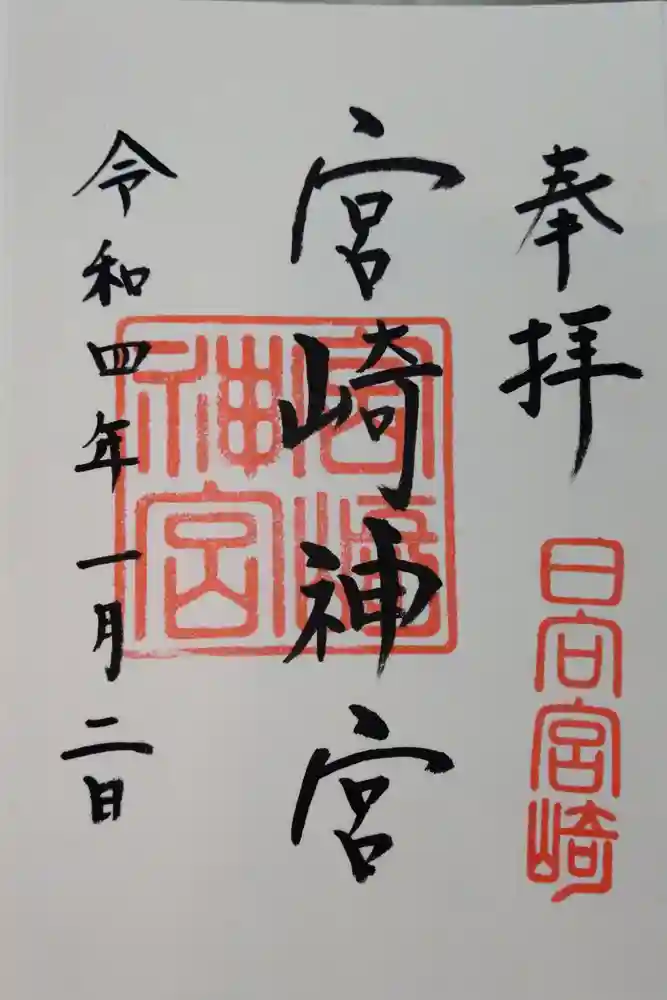 奉拝
日向宮崎
宮崎神宮
宮崎
神宮
令和四年一月二日